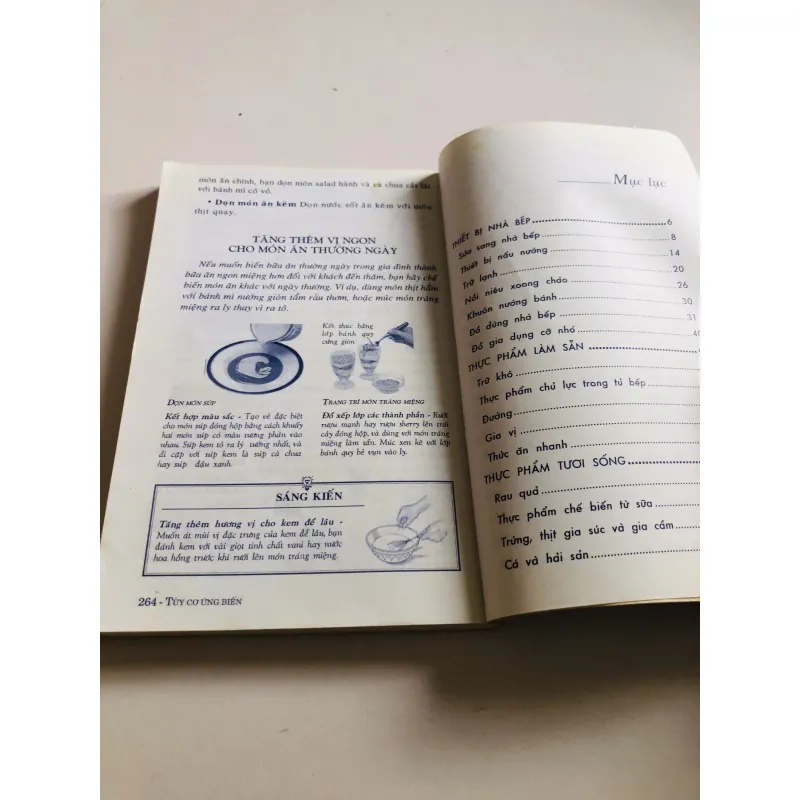 món ăn chính, bạn dọn món salad hành và cà chua cắt lát
với bánh mì có vỏ.
• Dọn món ăn kèm Dọn nước sốt ăn kèm với món
thịt quay.
TĂNG THÊM VỊ NGON
CHO MÓN ĂN THƯỜNG NGÀY
Nếu muốn biến bữa ăn thường ngày trong gia đình thành
bữa ăn ngon miệng hơn đối với khách đến thăm, bạn hãy chế
biến món ăn khác với ngày thường. Ví dụ, dùng món thịt hầm
với bánh mì nướng giòn tẩm rau thơm, hoặc múc món tráng
miệng ra ly thay vì ra tô.
Kết thúc bằng
lớp bánh quy
cứng giòn
DỌN MÓN SÚP
Kết hợp màu sắc - Tạo vẻ đặc biệt
cho món súp đóng hộp bằng cách khuấy
hai món súp có màu tương phản vào
nhau. Súp kem tỏ ra lý tưởng nhất, và
đi cặp với súp kem là súp cà chua
hay súp đậu xanh.
TRANG TRÍ MÓN TRÁNG MIỆNG
Đổ xếp lớp các thành phần - Rưới
rượu mạnh hay rượu sherry lên trái
cây đóng hộp, và dùng với món tráng
miệng làm sẵn. Múc xen kẽ với lớp
bánh quy bẻ vụn vào ly.
SÁNG KIẾN
Tăng thêm hương vị cho kem để lâu -
Muốn át mùi vị đặc trưng của kem để lâu, bạn
đánh kem với vài giọt tinh chất vani hay nước
hoa hồng trước khi rưới lên món tráng miệng.
264 - TÙY CƠ ỨNG BIẾN
Mục lục
THIẾT BỊ NHÀ BẾP 6
Sửa sang nhà bếp 8
Thiết bị nấu nướng 14
Trữ lạnh 20
Nồi niêu xoong chảo 26
Khuôn nướng bánh 30
Đồ dùng nhà bếp 31
Đồ gia dụng cỡ nhỏ 40
THỰC PHẨM LÀM SẴN
Trữ khô
Thực phẩm chủ lực trong tủ bếp
Đường
Gia vị
Thức ăn nhanh
THỰC PHẨM TƯƠI SỐNG
Rau quả
Thực phẩm chế biến từ sữa
Trứng, thịt gia súc và gia cầm
Cá và hải sản